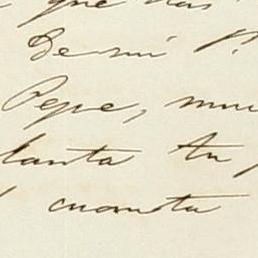 que
De mi
Pepe, mu
lanta tu
cuanta